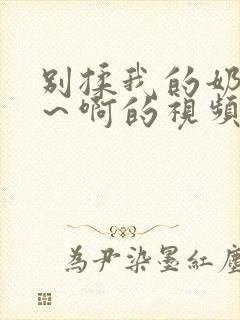 别揉我的奶
～啊的視頻
為尹染墨紅塵